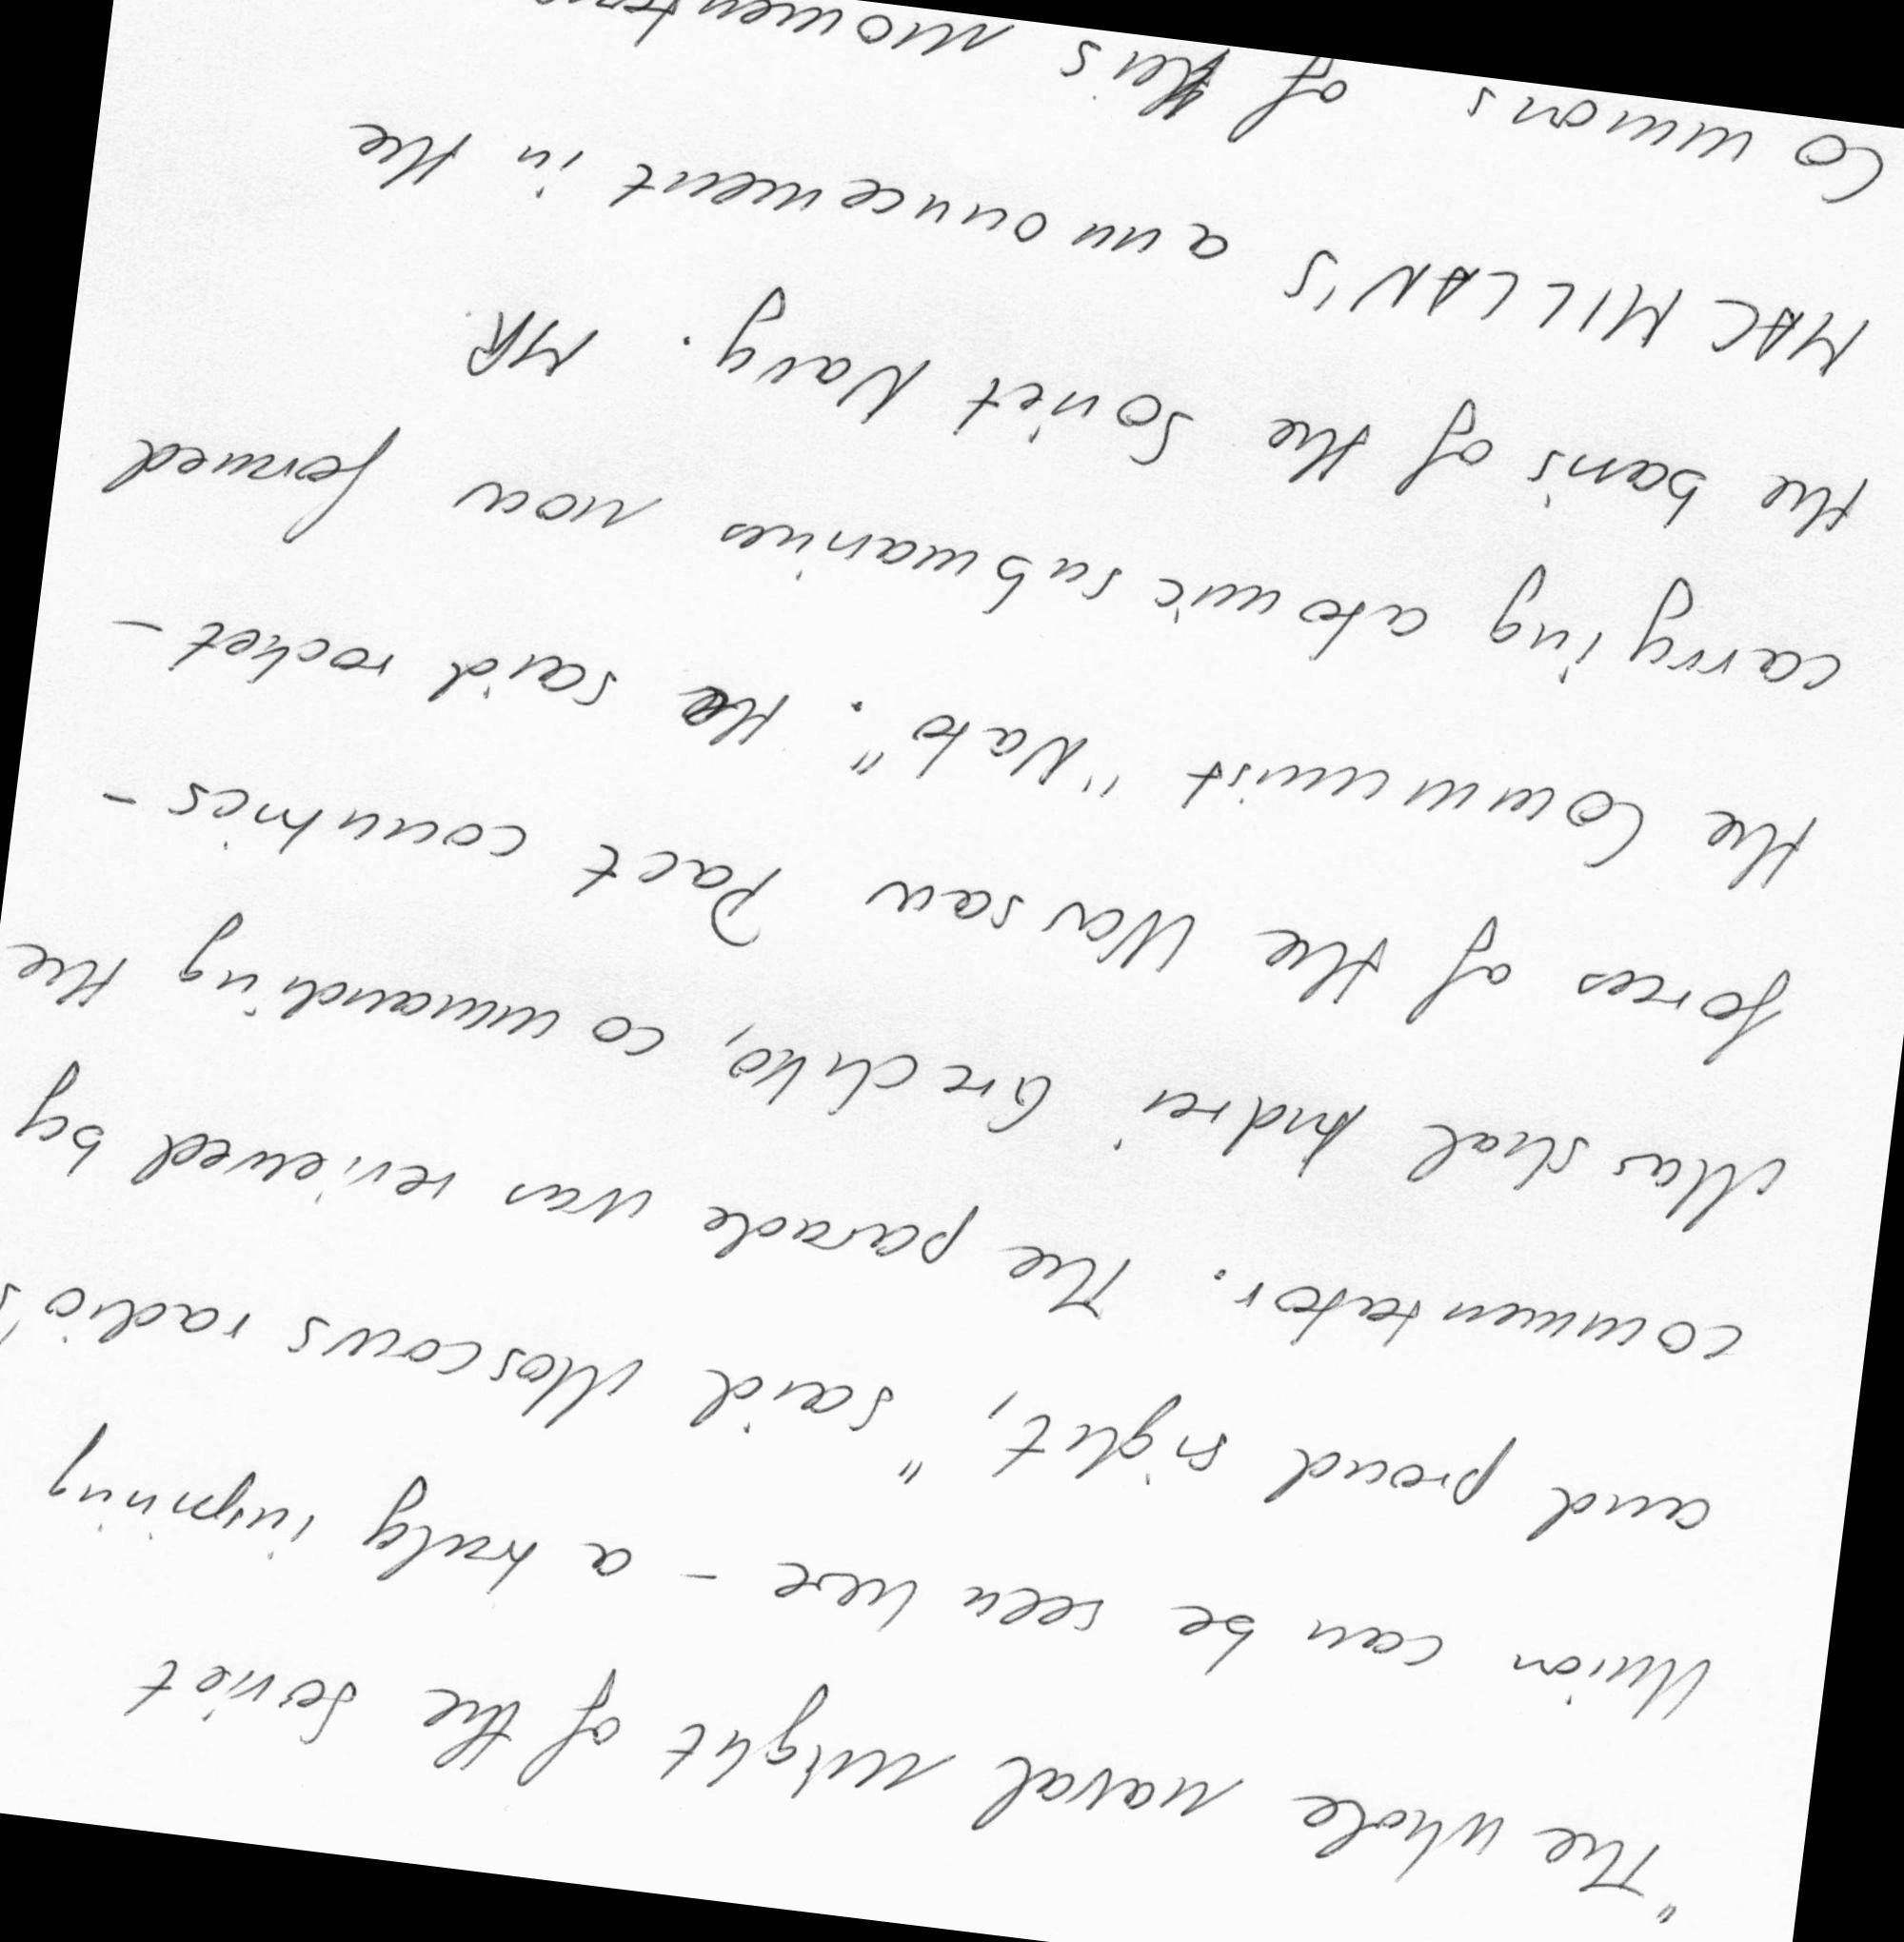 "The whole naval might of the Soviet
Union can be seen here - a truly inspiring
and proud sight," said Moscow's radio's
commentator. The parade was reviewed by
Marshal Andrei Grechko, commanding the
forces of the Warsaw Pact countries -
the Communist "Nato". He said rocket-
carrying atomic submarines now formed
the basis of the Soviet Navy. MR.
MACMILLAN'S announcement in the
Commons of this